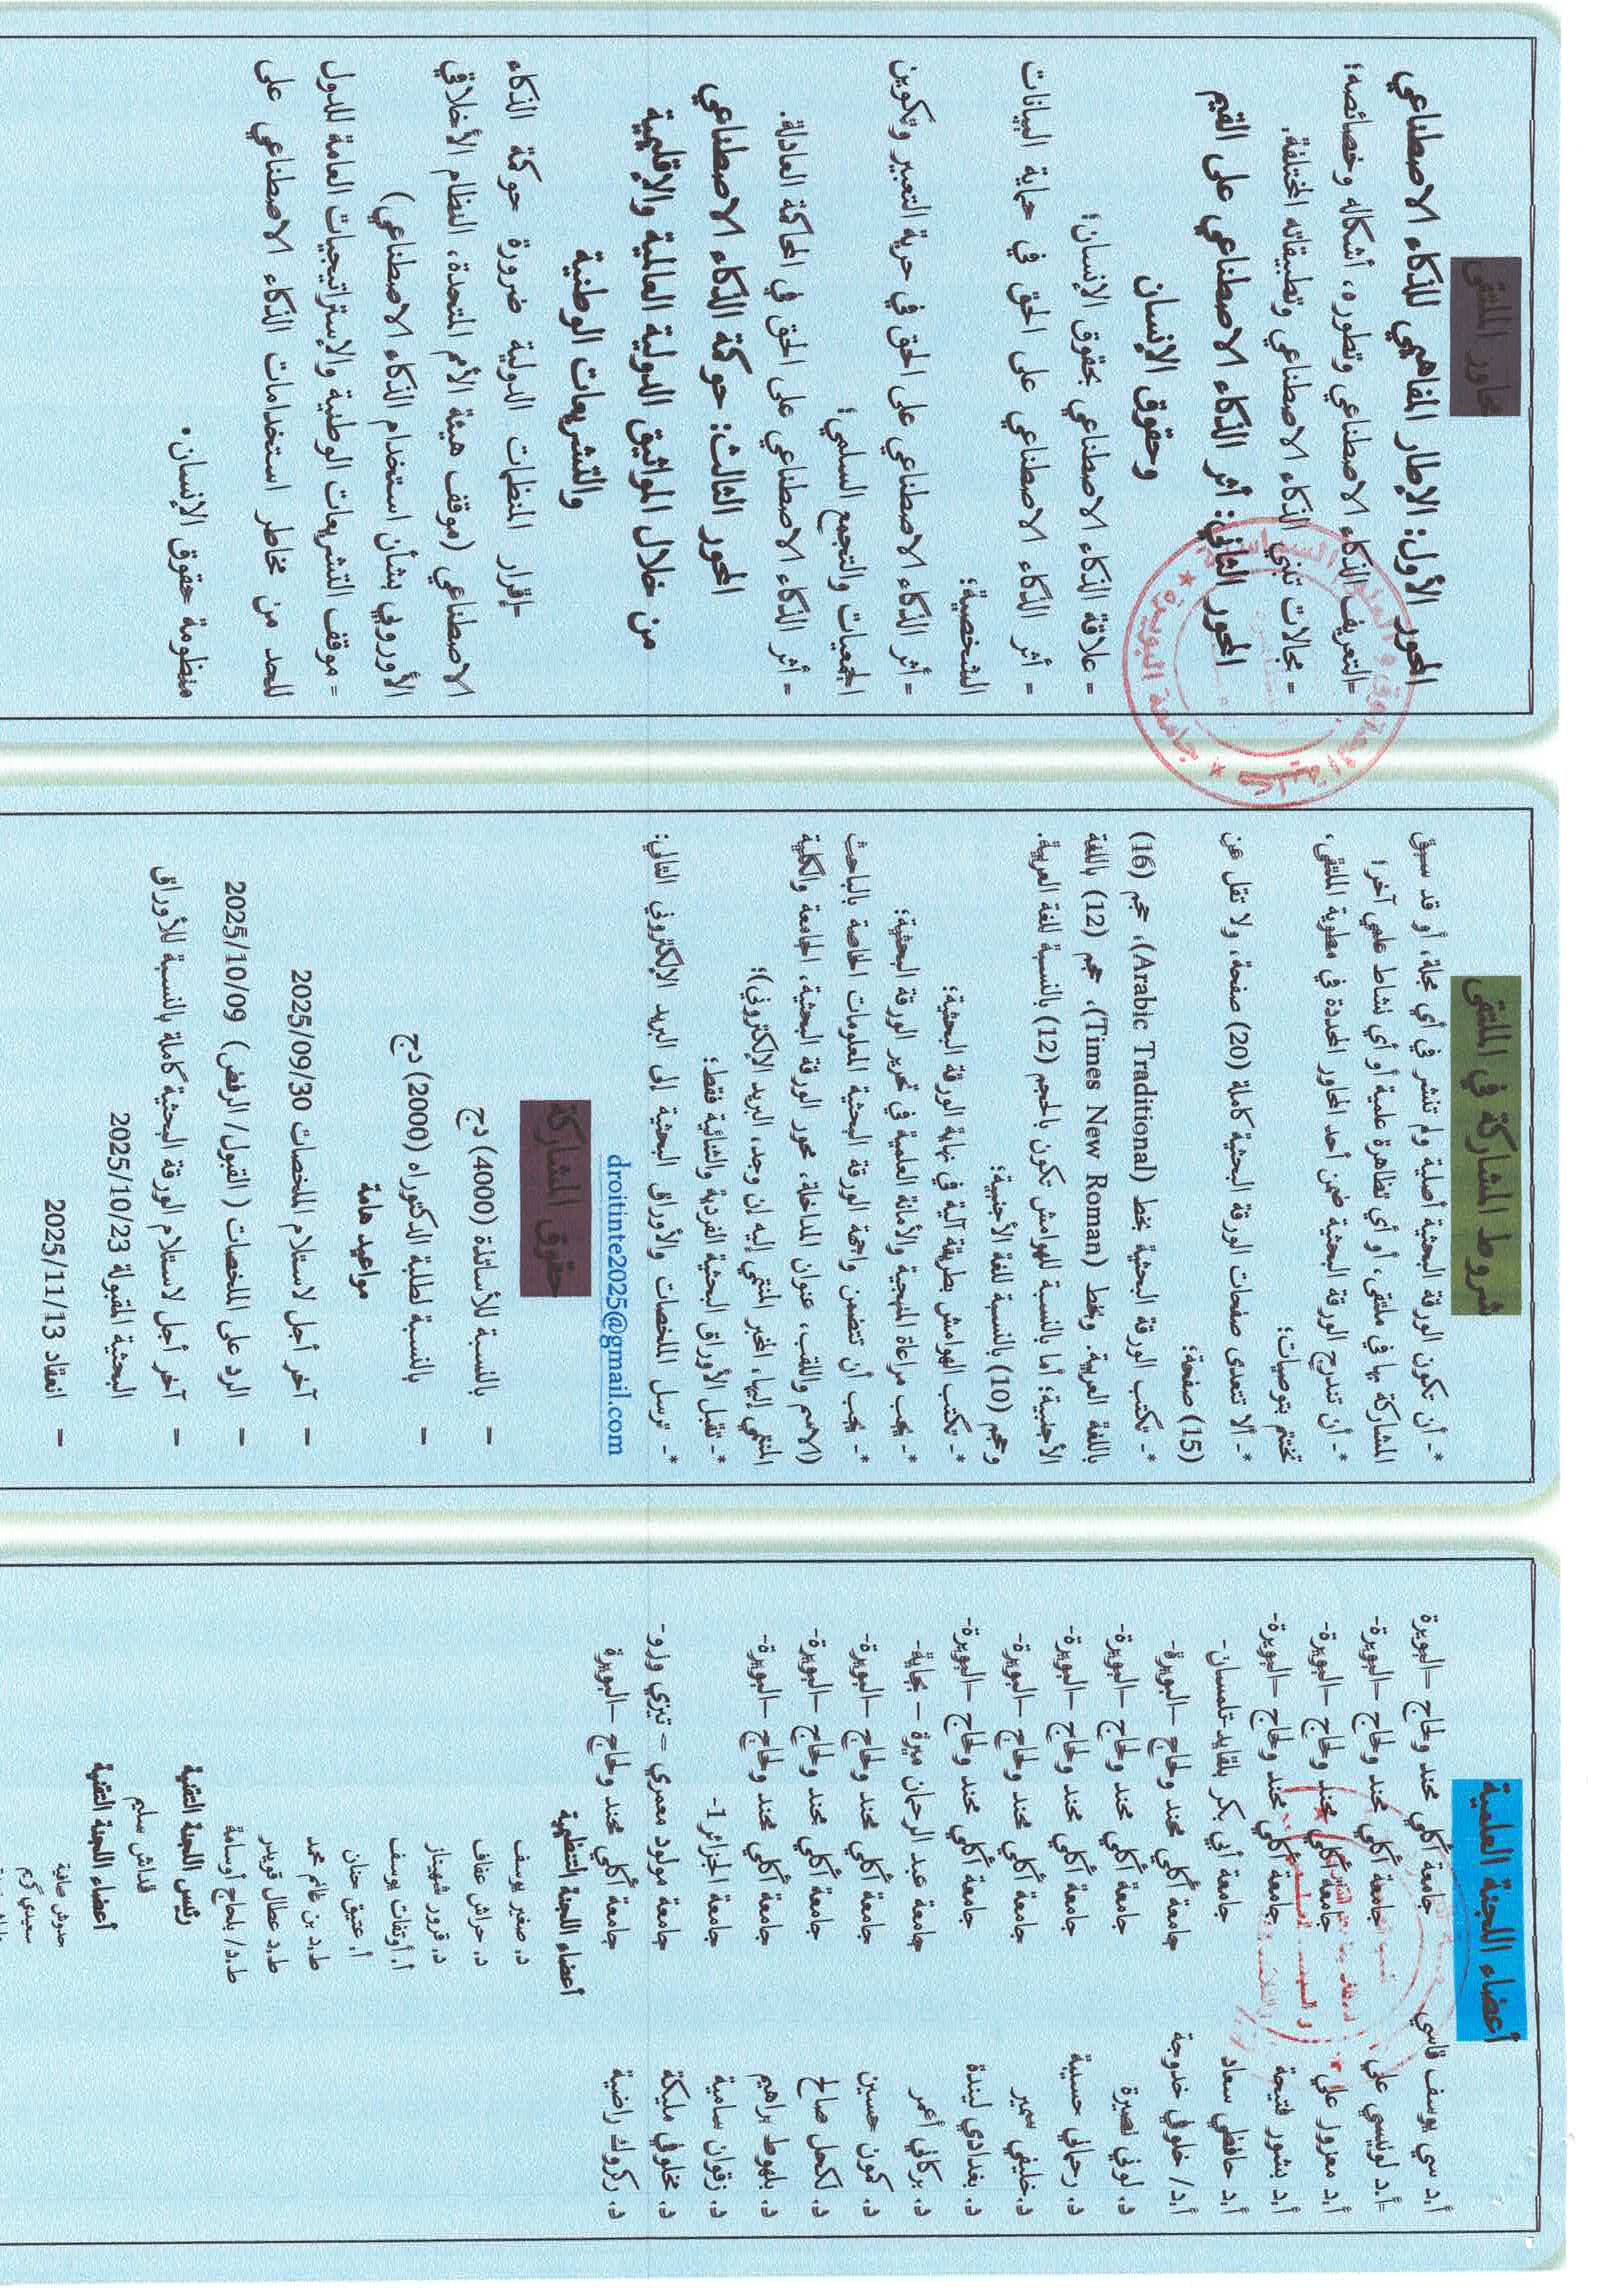 محاور الملتقى
المحور الأول: الإطار المفاهيمي للذكاء الاصطناعي
-التعريف الذكاء الاصطناعي وتطوره، أشكاله وخصائصه؛
- مجالات تبني الذكاء الاصطناعي وتطبيقاته المختلفة.
المحور الثاني: أثر الذكاء الاصطناعي على القيم
وحقوق الإنسان
- علاقة الذكاء الاصطناعي بحقوق الإنسان؛
- أثر الذكاء الاصطناعي على الحق في حماية البيانات
الشخصية؛
- أثر الذكاء الاصطناعي على الحق في حرية التعبير وتكوين
الجمعيات والتجمع السلمي؛
- أثر الذكاء الاصطناعي على الحق في المحاكمة العادلة.
المحور الثالث: حوكمة الذكاء الاصطناعي
من خلال المواثيق الدولية العالمية والإقليمية
والتشريعات الوطنية
-إقرار المنظمات الدولية ضرورة حوكمة الذكاء
الاصطناعي (موقف هيئة الأمم المتحدة، النظام الأخلاقي
الأوروبي بشأن استخدام الذكاء الاصطناعي)
- موقف التشريعات الوطنية والإستراتيجيات العامة للدول
للحد من مخاطر استخدامات الذكاء الاصطناعي على
منظومة حقوق الإنسان.
شروط المشاركة في الملتقى
*- أن تكون الورقة البحثية أصلية ولم تنشر في أي مجلة، أو قد سبق
المشاركة بها في ملتقى، أو أي تظاهرة علمية أو أي نشاط علمي آخر؛
*- أن تندرج الورقة البحثية ضمن أحد المحاور المحددة في مطوية الملتقى،
تختتم بتوصيات؛
*- ألا تتعدى صفحات الورقة البحثية كاملة (20) صفحة، ولا تقل عن
(15) صفحة؛
*- تكتب الورقة البحثية بخط (Arabic Traditional)، حجم (16)
باللغة العربية. وبخط (Times New Roman)، حجم (12) باللغة
الأجنبية؛ أما بالنسبة للهوامش تكون بالحجم (12) بالنسبة للغة العربية.
وحجم (10) بالنسبة للغة الأجنبية؛
*- تكتب الهوامش بطريقة آلية في نهاية الورقة البحثية؛
*- يجب مراعاة المنهجية والأمانة العلمية في تحرير الورقة البحثية؛
*- يجب أن تتضمن واجهة الورقة البحثية المعلومات الخاصة بالباحث
(الاسم واللقب، عنوان المداخلة، محور الورقة البحثية، الجامعة والكلية
المنتمي إليها، المخبر المنتمي إليه إن وجد، البريد الإلكتروني)؛
*- تقبل الأوراق البحثية الفردية والثنائية فقط؛
*- ترسل الملخصات والأوراق البحثية إلى البريد الإلكتروني التالي:
droitinte2025@gmail.com
حقوق المشاركة
- بالنسبة للأساتذة (4000) دج
- بالنسبة لطلبة الدكتوراه (2000) دج
مواعيد هامة
- آخر أجل لاستلام الملخصات 2025/09/30
- الرد على الملخصات ( القبول/ الرفض) 2025/10/09
- آخر أجل لاستلام الورقة البحثية كاملة بالنسبة للأوراق
البحثية المقبولة 2025/10/23
- انعقاد 2025/11/13
أعضاء اللجنة العلمية
أ.د سي يوسف قاسي جامعة أكلي محند ولحاج –البويرة
أ.د لونيسي علي جامعة أكلي محند ولحاج –البويرة-
أ.د معزوز علي جامعة أكلي محند ولحاج –البويرة-
أ.د بشور فتيحة جامعة أكلي محند ولحاج –البويرة-
أ.د حافظي سعاد جامعة أبي بكر بلقايد-تلمسان-
أ.د/ خلوفي خدوجة جامعة أكلي محند ولحاج –البويرة-
د. لوني نصيرة جامعة أكلي محند ولحاج –البويرة-
د. رحماني حسيبة جامعة أكلي محند ولحاج –البويرة-
د.خليفي سمير جامعة أكلي محند ولحاج –البويرة-
د. بغدادي ليندة جامعة أكلي محند ولحاج –البويرة-
د. بركاني أعمر جامعة عبد الرحمان ميرة – بجاية-
د. كمون حسين جامعة أكلي محند ولحاج –البويرة-
د. لكحل صالح جامعة أكلي محند ولحاج –البويرة-
د. بلهوط براهيم جامعة أكلي محند ولحاج –البويرة-
د. زقوان سامية جامعة الجزائر 1-
د. مخلوفي مليكة جامعة مولود معمري – تيزي وزو-
د. ركروك راضية جامعة أكلي محند ولحاج –البويرة
أعضاء اللجنة التنظيمية
د. صغير يوسف
د. حراش عفاف
د. قرور شهيناز
أ. أوتفات يوسف
أ. عتيق حنان
ط.د بن غانم محمد
ط.د عطال قويدر
ط.د/ بلحاج أوسامة
رئيس اللجنة التقنية
قداش سليم
أعضاء اللجنة التقنية
حدوش صافية
سعيدي كريم
كلية الحقوق و العلوم السياسية
جامعة البويرة